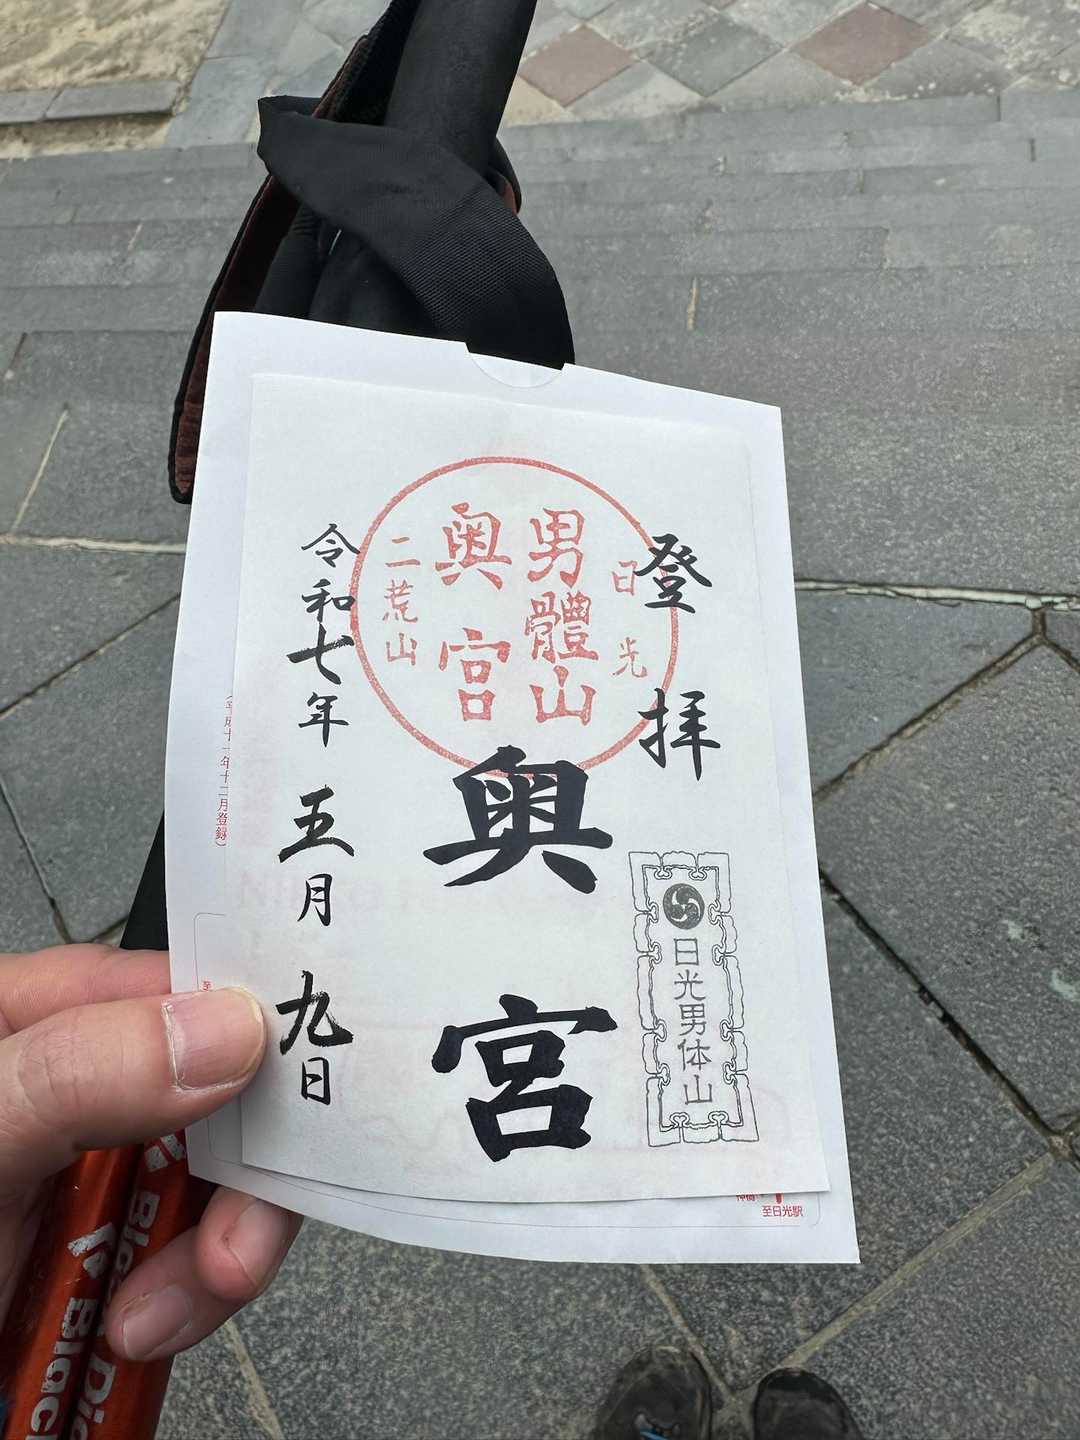 登拝
日光
男體山
奥宮
二荒山
奥宮
日光男体山
令和七年 五月 九日
(平成十一年十二月登録)
至
至日光駅
Black Di
Blac